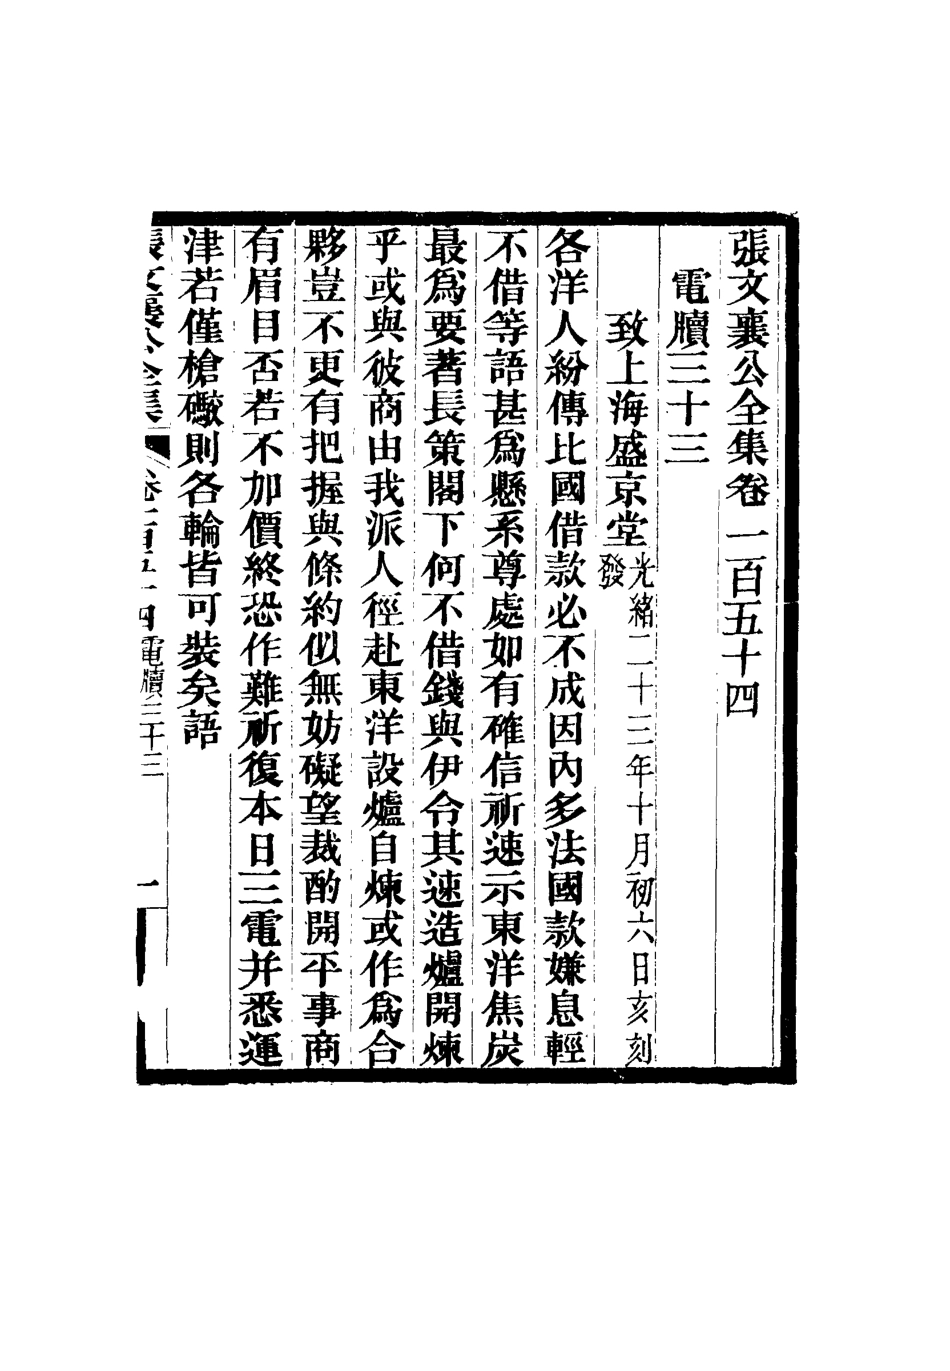 張文襄公全集卷一百五十四
電牘三十三
致上海盛京堂光緒二十三年十月初六日亥刻發
各洋人紛傳比國借款必不成因內多法國款嫌息輕
不借等語甚爲懸系尊處如有確信祈速示東洋焦炭
最爲要著長策閣下何不借錢與伊令其速造爐開煉
乎或與彼商由我派人徑赴東洋設爐自煉或作爲合
夥豈不更有把握與條約似無妨礙望裁酌開平事商
有眉目否若不加價終恐作難祈復本日三電并悉運
津若僅槍礮則各輪皆可裝矣語
張文襄公全集 卷一百五十四 電牘三十三 一